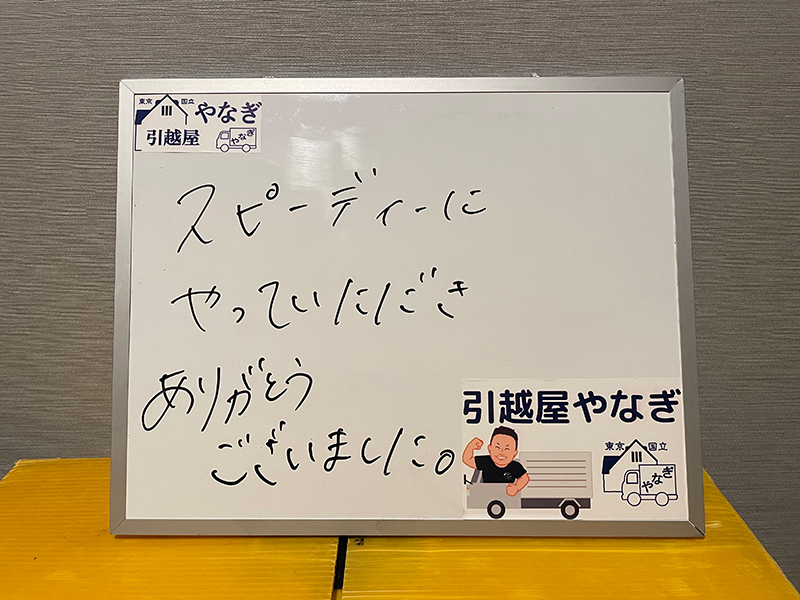 東京 国立
やなぎ
引越屋
やなぎ
スピーディーに
やっていただき
ありがとう
ございました。
引越屋やなぎ
東京 国立
やなぎ